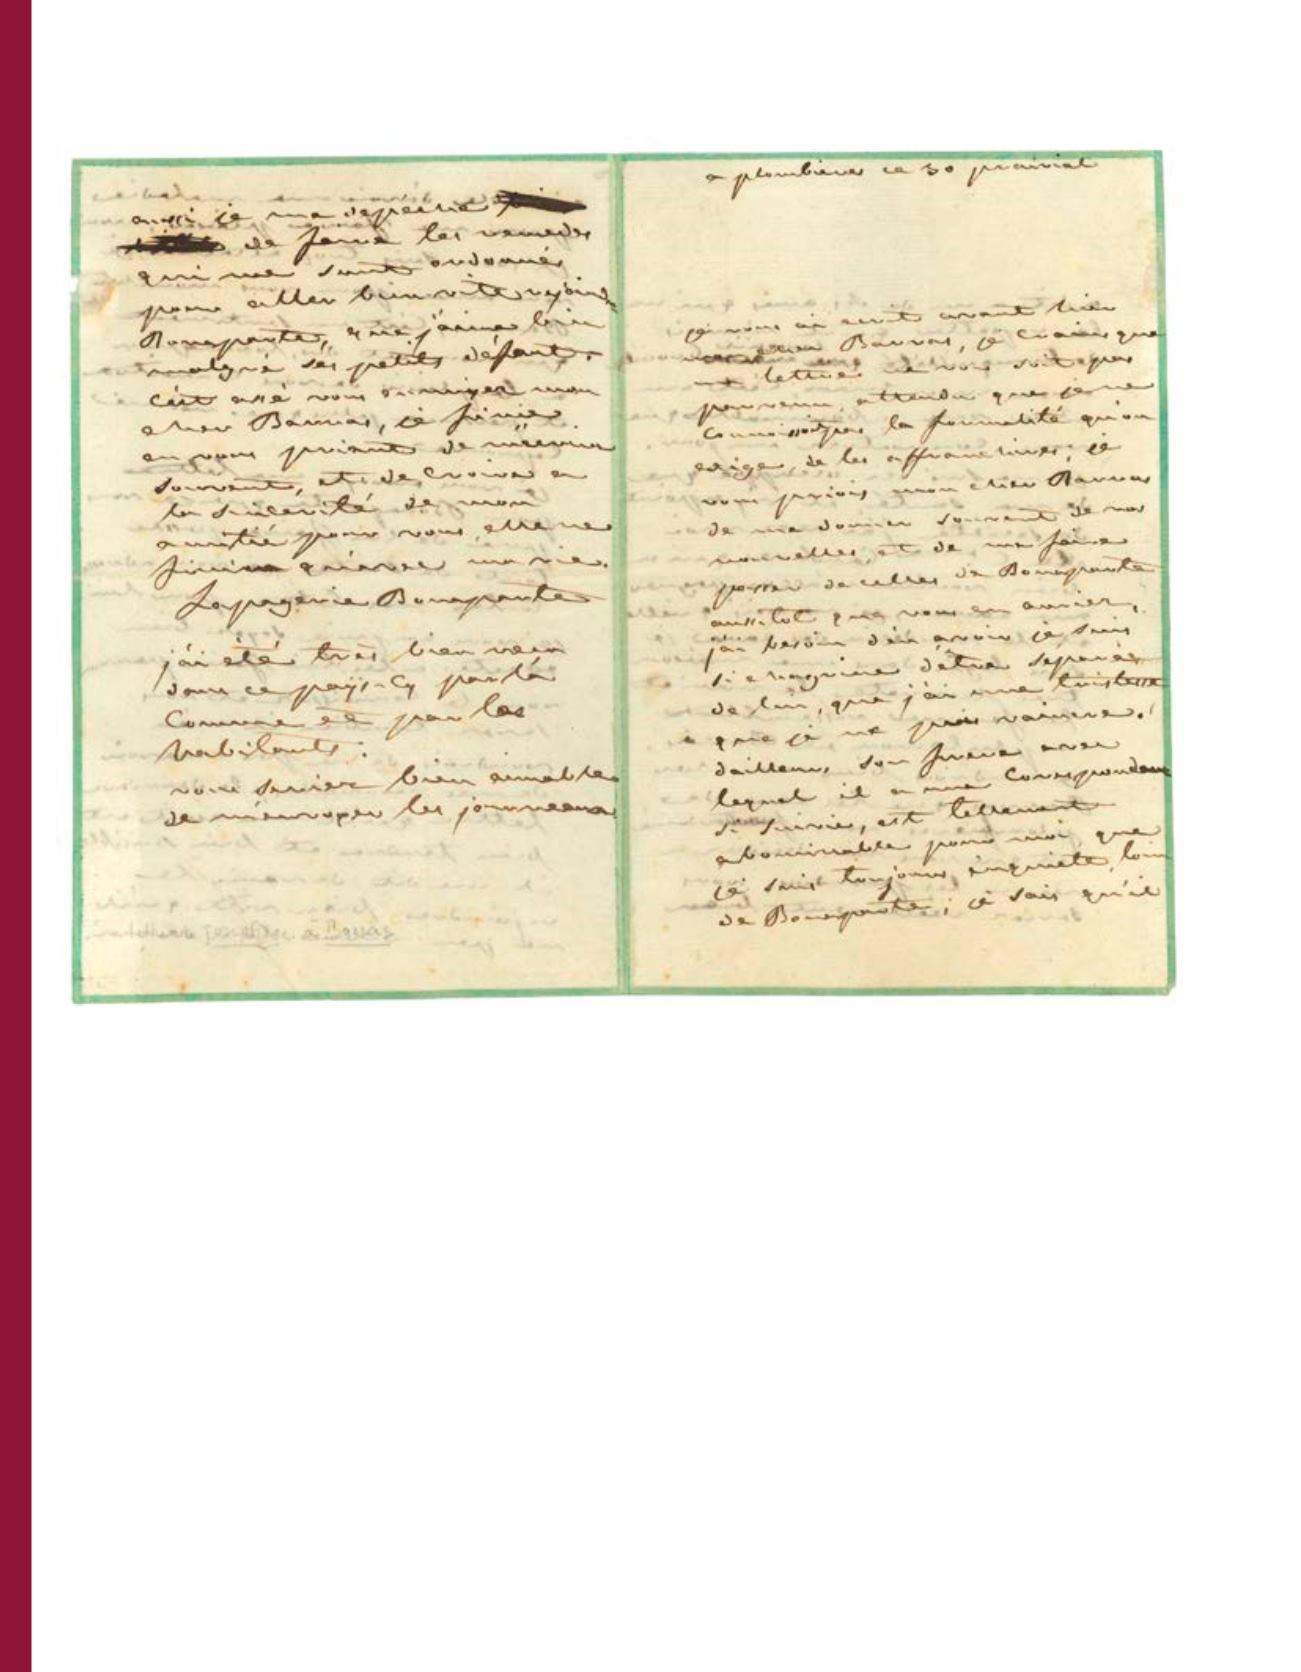 a plombieres ce 30 prairial
je vous ai ecrit avant hier
mon cher Barras, je crains que
ma lettre ne vous soit pas
parvenu, attendu que je ne
connoissoit pas la formalité qu'on
exige, de les affranchires, je
vous priois mon cher Barras
de me donner souvent de vos
nouvelles, et de me faire
passer de celles de Bonaparte
aussitot que vous en auriez,
j'ai besoin d'en avoir je suis
si chagrine d'être separée
de lui, que j'ai une tristesse
que je ne puis vaincre.
d'ailleurs, son frere avec
lequel il a une correspondance
si suivie, est tellement
abominable pour moi que
je suis toujours inquiete loin
de Bonaparte; je sais qu'il
aussi je me depeche
de faire les remedes
qui me sont ordonnés
pour aller bien vite rejoindre
Bonaparte, que j'aime bien
malgré ses petits défauts.
c'est assé vous ennuyer mon
cher Barras, je finie
en vous priant de m'ecrire
souvent, et de croire a
la sincerité de mon
amitié pour vous, elle ne
finira qu'avec ma vie.
Lapagerie Bonaparte
j'ai été très bien recu
dans ce pays-cy par la
Commune et par les
habitants.
vous seriez bien aimable
de m'envoyer les journeaux